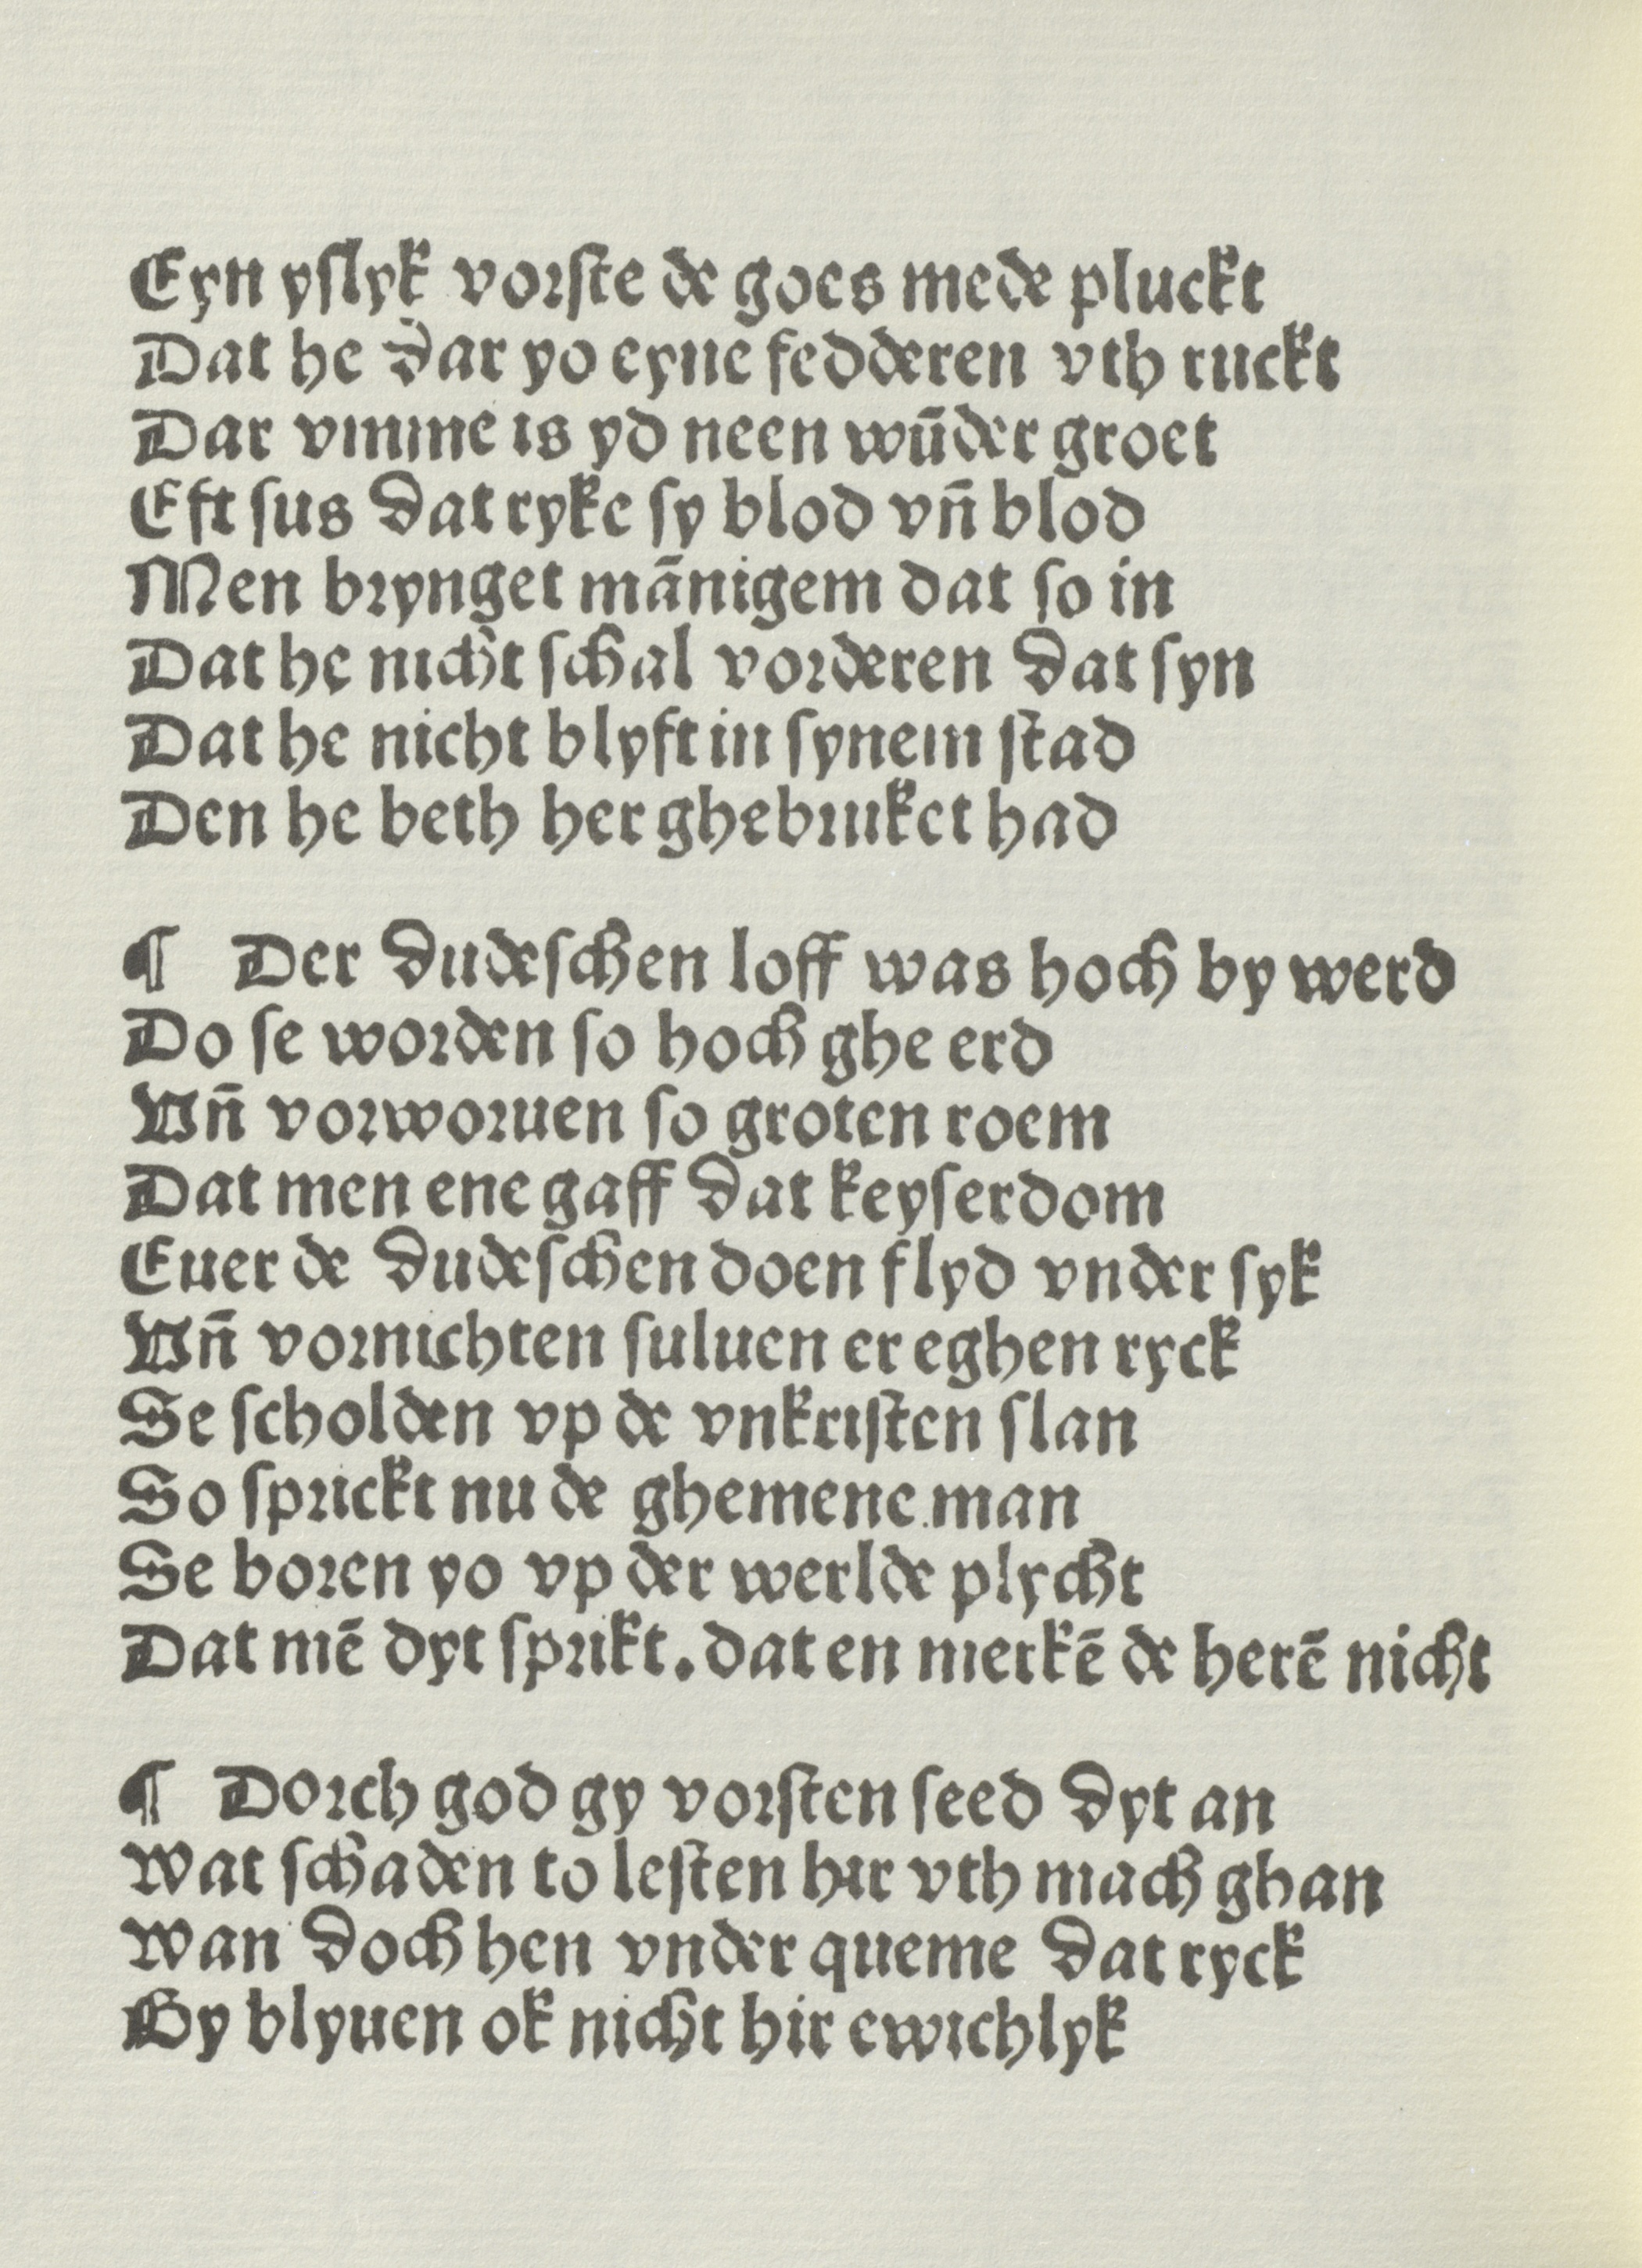 Eyn yslyk vorste de goes mede pluckt
Dat he dar yo eyne fedderen vth ruckt
Dar vmme is yd neen wūder groet
Eft sus dat ryke sy blod vn̄ blod
Men brynget mānigem dat so in
Dat he nicht schal vorderen dat syn
Dat he nicht blyft in synem stad
Den he beth her ghebruket had
¶ Der dudeschen loff was hoch by werd
Do se worden so hoch ghe erd
Vn̄ vorworuen so groten roem
Dat men ene gaff dat keyserdom
Euer de dudeschen doen flyd vnder syk
Vn̄ vornichten suluen er eghen ryck
Se scholden vp de vnkristen slan
So sprickt nu de ghemene man
Se boren yo vp der werlde plycht
Dat mē dyt sprikt. dat en merkē de herē nicht
¶ Dorch god gy vorsten seed dyt an
Wat schaden to lesten hir vth mach ghan
Wan doch hen vnder queme dat ryck
Gy blyuen ok nicht hir ewichlyk